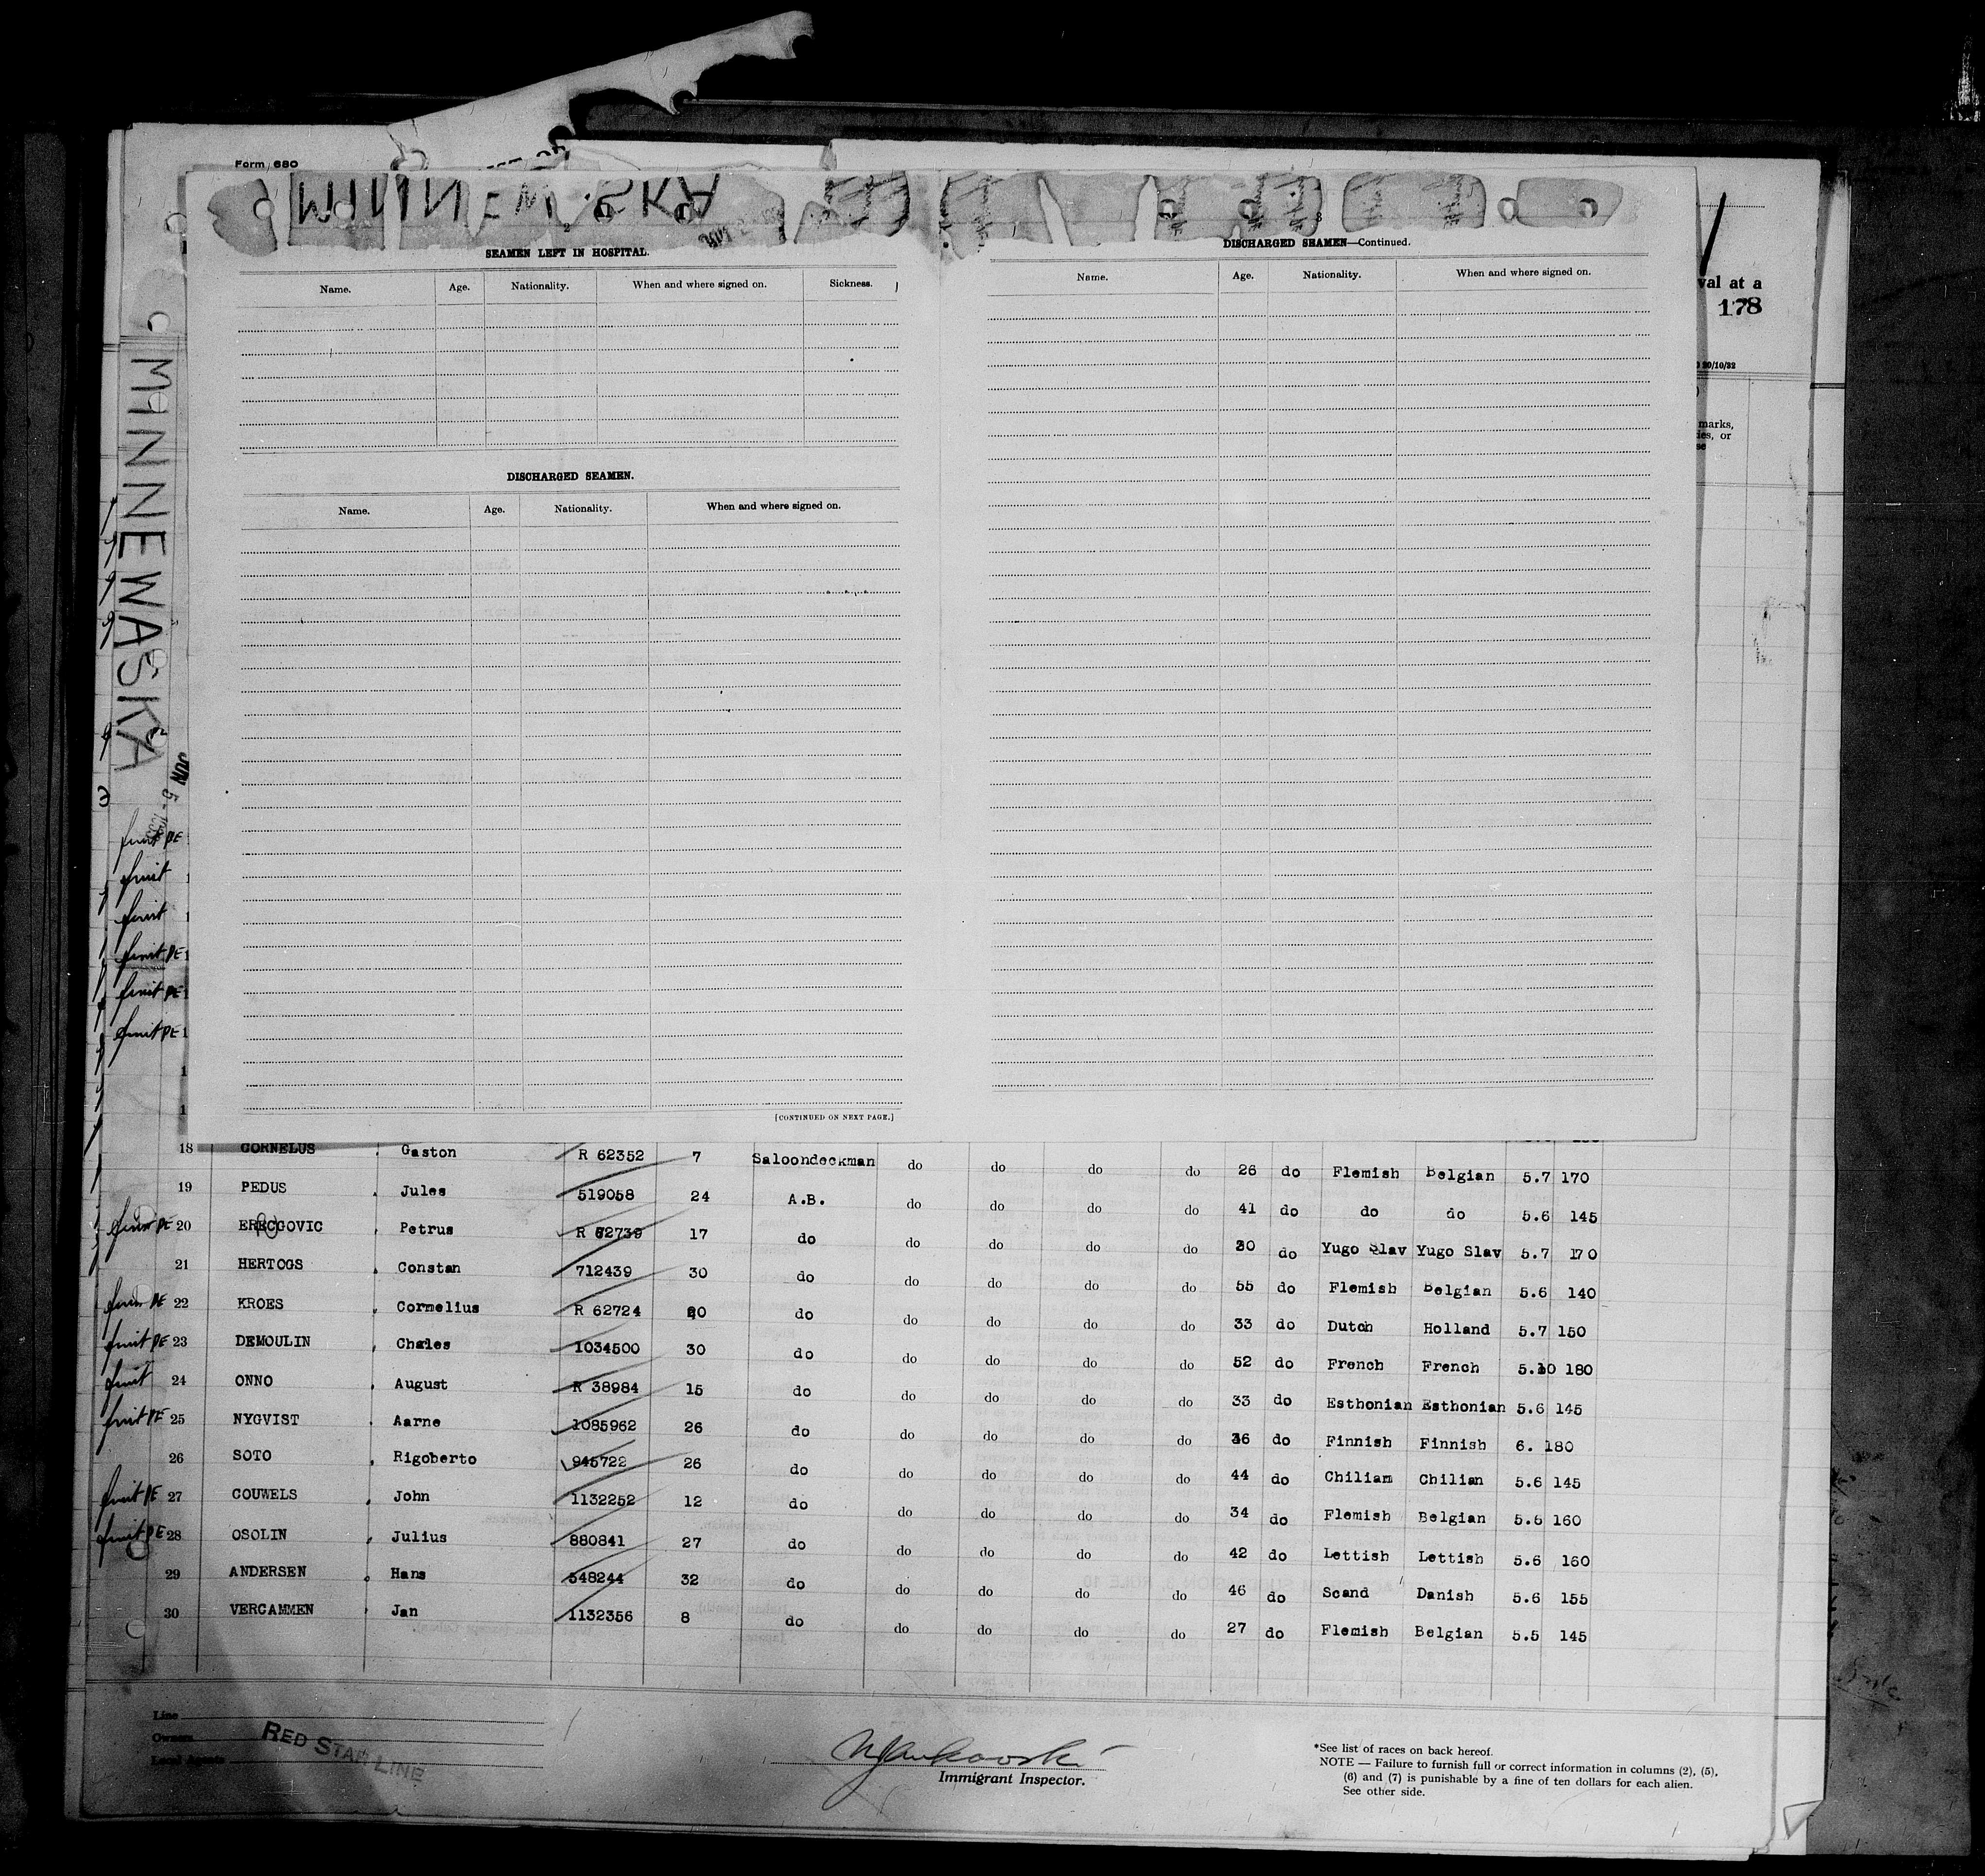 Form 680
MINNEWASKA
SEAMEN LEFT IN HOSPITAL.
Name. Age. Nationality. When and where signed on. Sickness.
DISCHARGED SEAMEN.
Name. Age. Nationality. When and where signed on.
[CONTINUED ON NEXT PAGE.]
3
DISCHARGED SEAMEN—Continued.
Name. Age. Nationality. When and where signed on.
val at a
178
20/10/32
marks,
ies, or
se
MINNEWASKA
JUN 5-
fruit PE
fruit
fruit
fruit PE
fruit PE
fruit PE
18 CORNELUS , Gaston R 62352 7 Saloondeckman do do do do 26 do Flemish Belgian 5.7 170
19 PEDUS , Jules 519058 24 A.B. do do do do 41 do do do 5.6 145
fruit PE 20 ERECGOVIC , Petrus R 62739 17 do do do do do 30 do Yugo Slav Yugo Slav 5.7 170
21 HERTOGS , Constan 712439 30 do do do do do 55 do Flemish Belgian 5.6 140
fruit PE 22 KROES , Cornelius R 62724 20 do do do do do 33 do Dutch Holland 5.7 150
fruit PE 23 DEMOULIN , Chales 1034500 30 do do do do do 52 do French French 5.10 180
fruit 24 ONNO , August R 38984 15 do do do do do 33 do Esthonian Esthonian 5.6 145
fruit PE 25 NYGVIST , Aarne 1085962 26 do do do do do 36 do Finnish Finnish 6. 180
26 SOTO , Rigoberto 945722 26 do do do do do 44 do Chilian Chilian 5.6 145
fruit PE 27 COUWELS , John 1132252 12 do do do do do 34 do Flemish Belgian 5.5 160
fruit PE 28 OSOLIN , Julius 880841 27 do do do do do 42 do Lettish Lettish 5.6 160
29 ANDERSEN , Hans 548244 32 do do do do do 46 do Scand Danish 5.6 155
30 VERCAMMEN , Jan 1132356 8 do do do do do 27 do Flemish Belgian 5.5 145
Line
Owners
Local Agents
RED STAR LINE
Immigrant Inspector.
*See list of races on back hereof.
NOTE — Failure to furnish full or correct information in columns (2), (5),
(6) and (7) is punishable by a fine of ten dollars for each alien.
See other side.